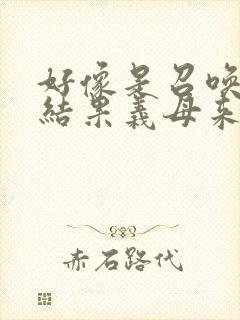 好像是召唤
结果義母来
赤石路代